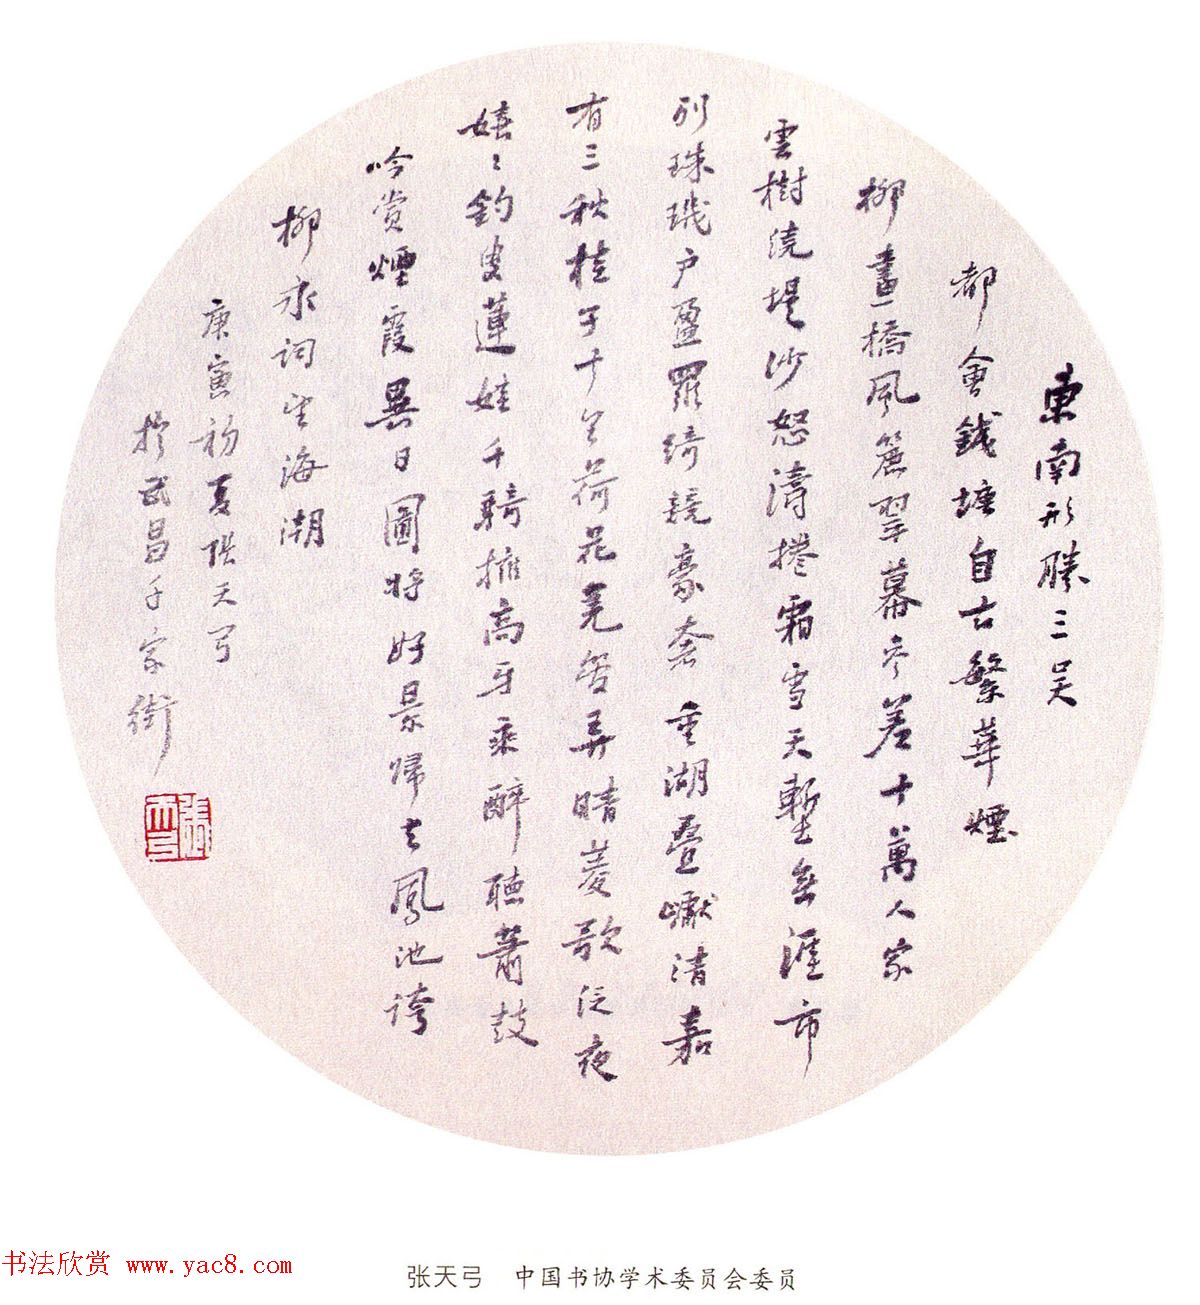 東南形勝三吴
都會錢塘自古繁華煙
柳畫橋風簾翠幕参差十萬人家
雲樹繞堤沙怒濤捲霜雪天塹無涯市
列珠璣户盈羅綺競豪奢重湖疊巘清嘉
有三秋桂子十里荷花羌管弄晴菱歌泛夜
嬉〻釣叟蓮娃千騎擁高牙乘醉聽蕭鼓
吟賞煙霞異日圖將好景歸去鳳池誇
柳永詞望海潮
庚寅初夏張天弓
於武昌千家街
張天弓
书法欣赏 www.yac8.com
张天弓 中国书协学术委员会委员